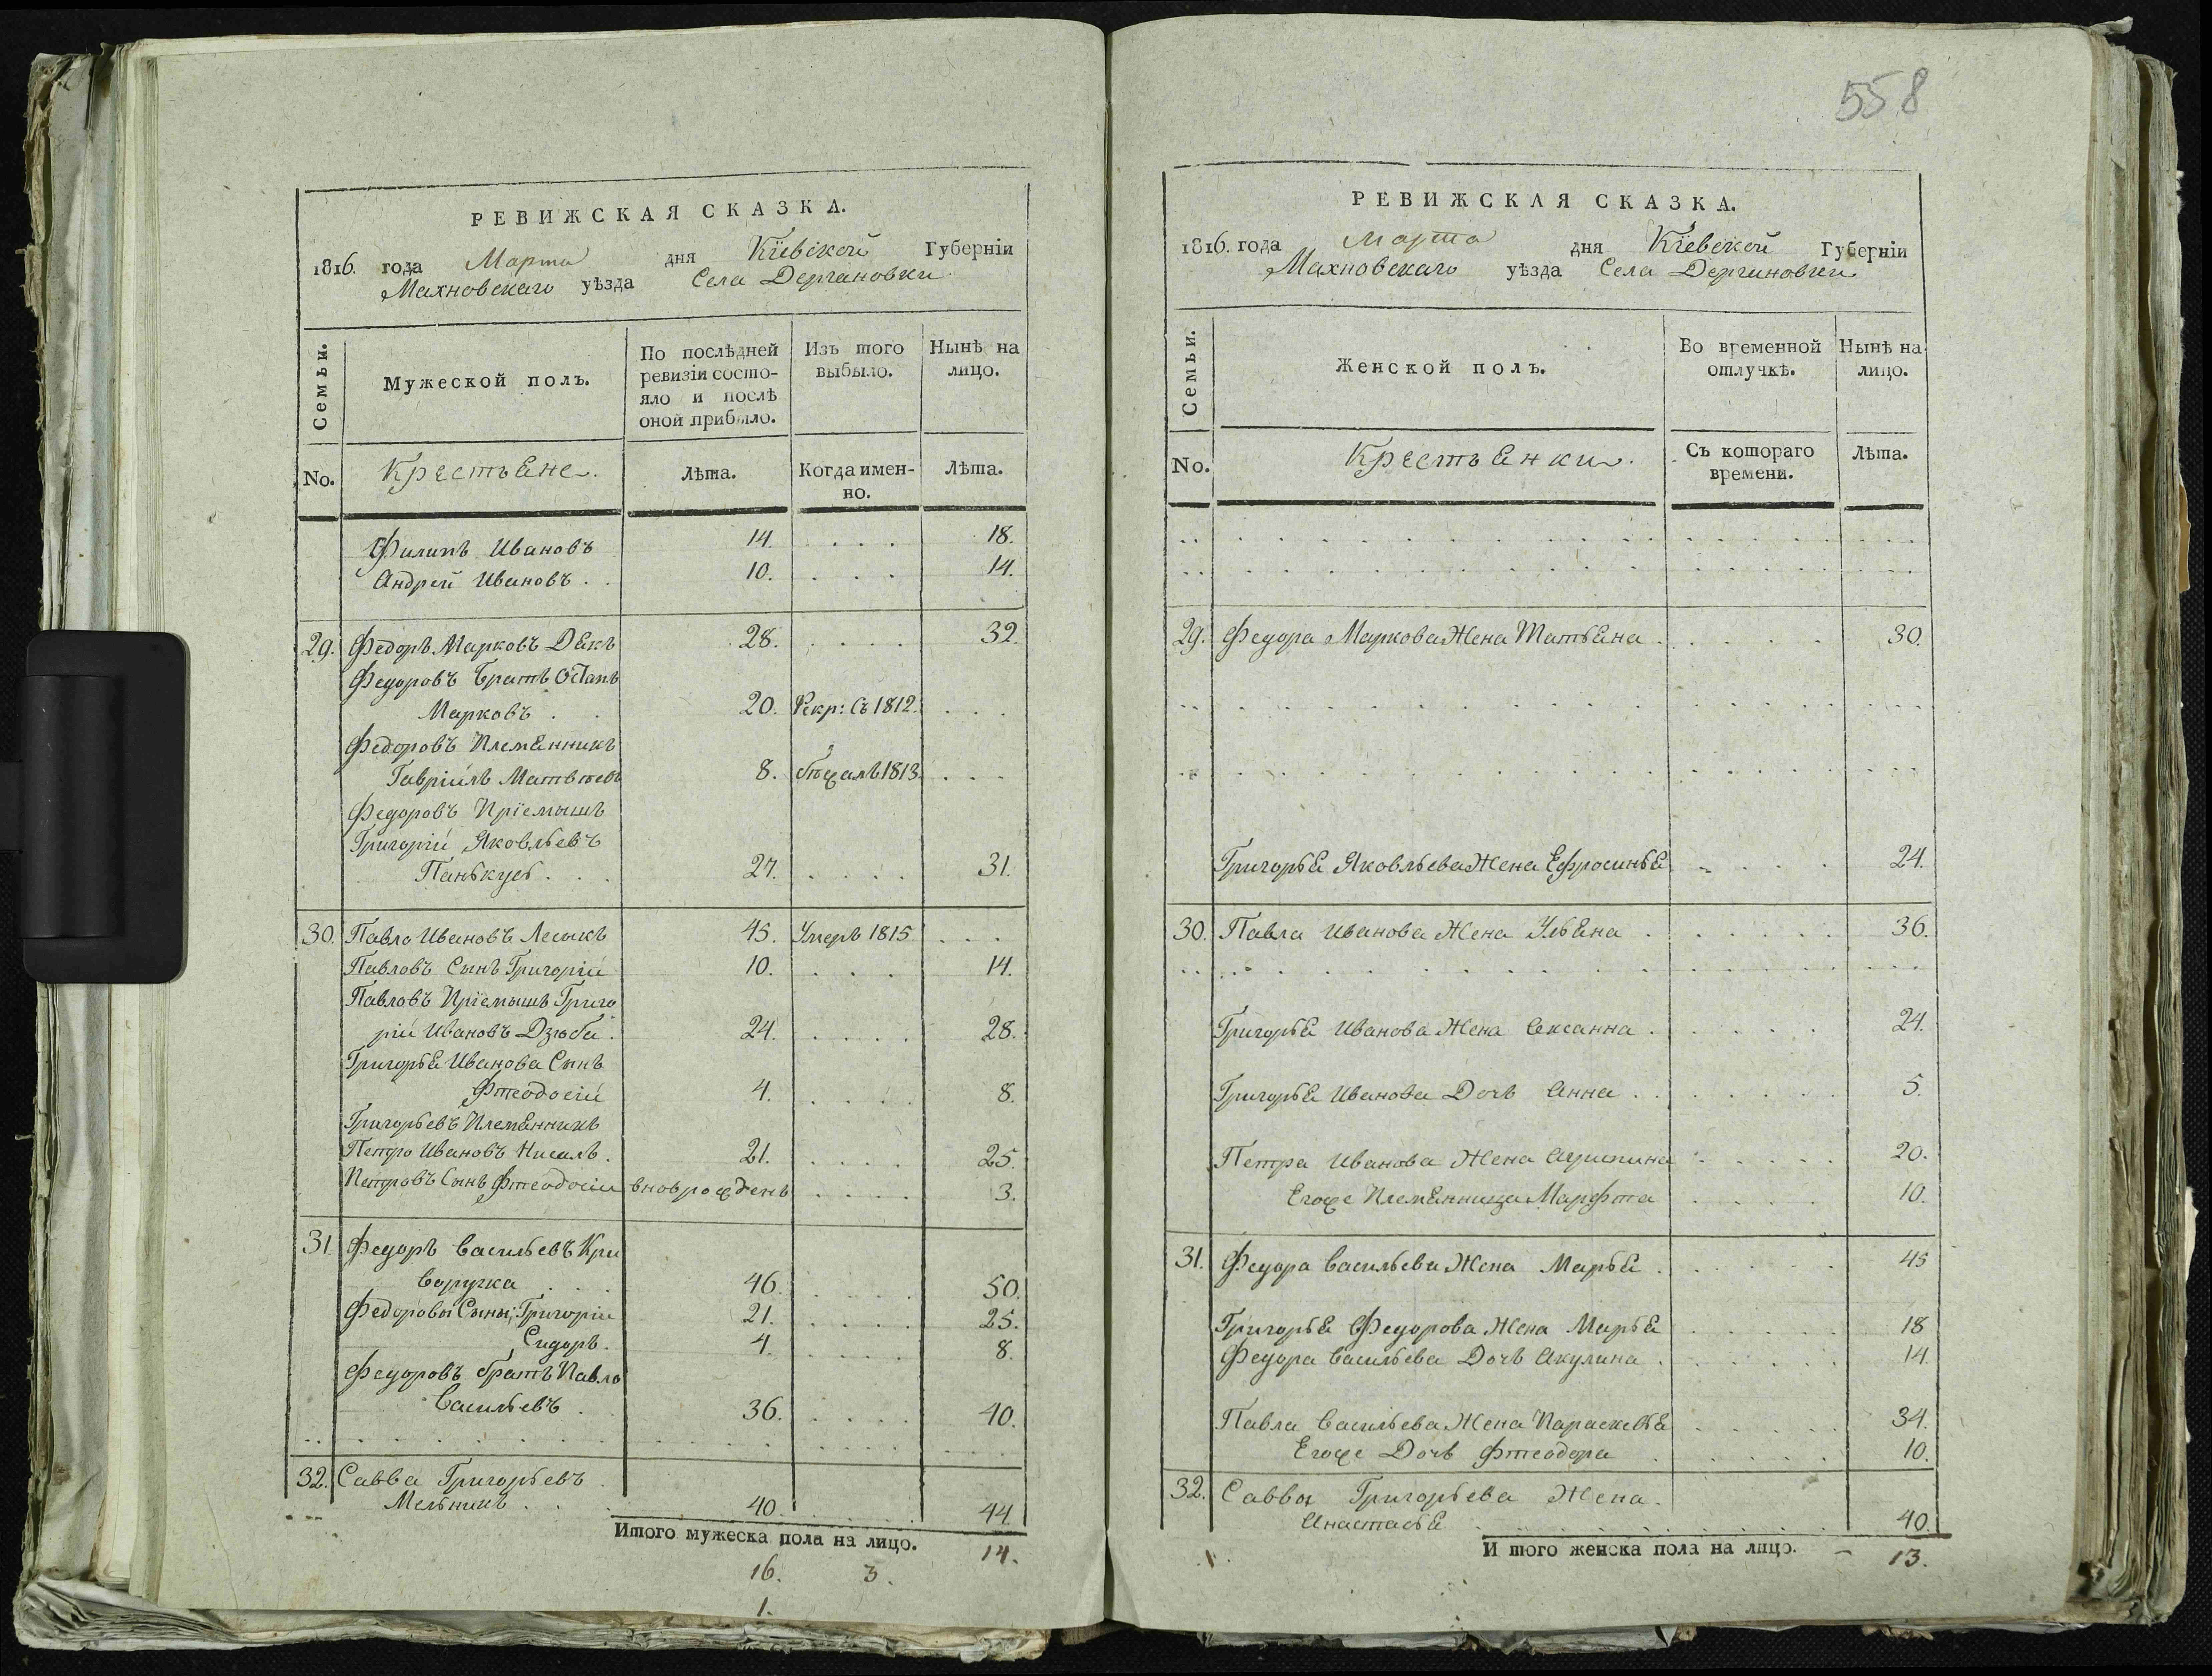 РЕВИЖСКАЯ СКАЗКА.
1816. года Марта дня Кіевской Губерніи
Махновскаго уѣзда Села Дергановки
Семьи.
Мужеской полъ.
По послѣдней ревизіи состо-
яло и послѣ
оной прибыло.
Изъ того
выбыло.
Нынѣ на
лицо.
No.
Крестьяне.
Лѣта.
Когда имен-
но.
Лѣта.
Филипъ Ивановъ 14. 18.
Андрей Ивановъ 10. 14.
29. Федоръ Марковъ Дякъ 28. 32.
Федоровъ Братъ Остапъ
Марковъ 20. Рекр: съ 1812.
Федоровъ Племянникъ
Гавріилъ Матвѣевъ 8. бѣжалъ 1813.
Федоровъ Пріемышъ
Григорій Яковльевъ
Панькусь 27. 31.
30. Павло Ивановъ Лесыкъ 45. Умеръ 1815.
Павловъ Сынъ Григорій 10. 14.
Павловъ Пріемышъ Григо
рій Ивановъ Дзюба 24. 28.
Григорья Иванова Сынъ
Фтеодосій 4. 8.
Григорьевъ Племянникъ
Петро Ивановъ 21. 25.
Петровъ Сынъ Фтеодосій вноврожденъ 3.
31 Федоръ Васильевъ Кри
воручка 46. 50.
Федоровы Сыны; Григорій 21. 25.
Сидоръ. 4. 8.
Федоровъ братъ Павло
Васильевъ 36. 40.
32. Савва Григорьевъ
Мельникъ 40. 44.
Итого мужеска пола на лицо. 14.
16. 3.
1.
558
РЕВИЖСКАЯ СКАЗКА.
1816. года Марта дня Кіевской Губерніи
Махновскаго уѣзда Села Дергановки
Семьи.
Женской полъ.
Во временной
отлучкѣ.
Нынѣ на
лицо.
No.
Крестьянки.
Съ котораго
времени.
Лѣта.
29. Федора Маркова Жена Татьяна 30.
Григорья Яковльева Жена Ефросинья 24.
30. Павла Иванова Жена Ульяна 36.
Григорья Иванова Жена Оксанна 24.
Григорья Иванова Дочь Анна 5.
Петра Иванова Жена Агрипина 20.
Егоже Племянница Марфта 10.
31. Федора Васильева Жена Марья 45
Григорья Федорова Жена Марья 18
Федора Васильева Дочь Акулина 14.
Павла Васильева Жена Параскевья 34.
Егоже Дочь Фтеодора 10.
32. Саввы Григорьева Жена
Анастасья 40.
Итого женска пола на лицо. - 13.